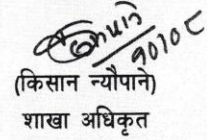 (किसान न्यौपाने)
शाखा अधिकृत